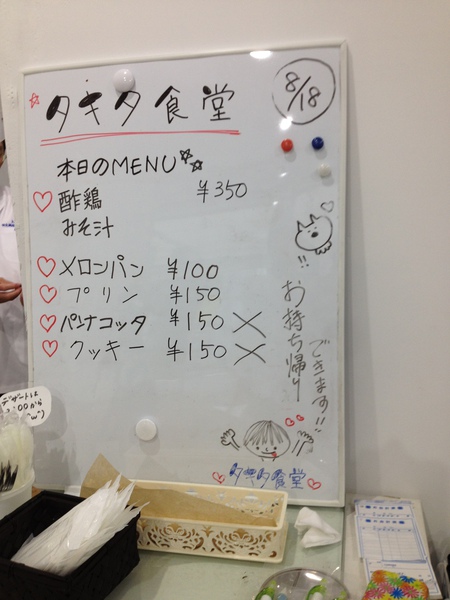 タキタ食堂
8/18
本日のMENU
酢鶏 ¥350
みそ汁
メロンパン ¥100
プリン ¥150
パンナコッタ ¥150 ×
クッキー ¥150 ×
お持ち帰り
できます!!
タキタ食堂
デザートは
:00から